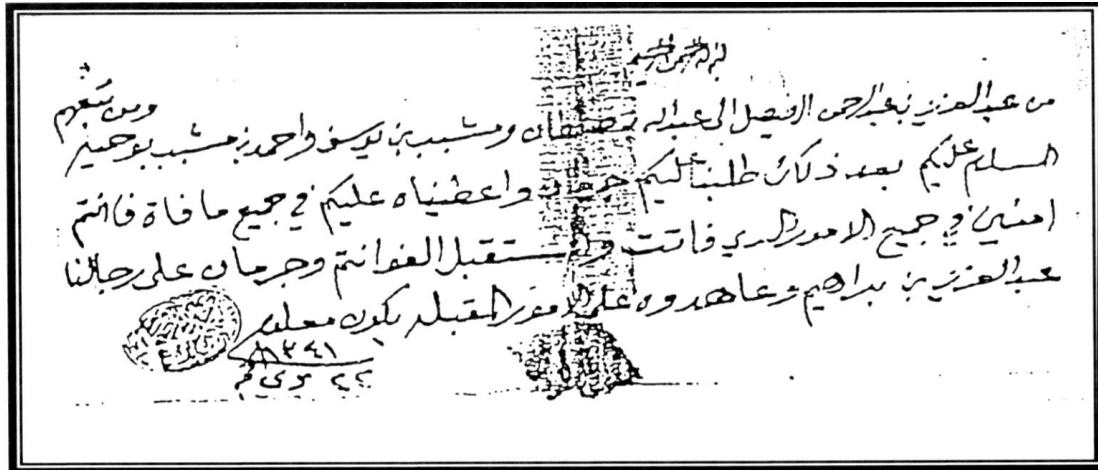 بسم الله الرحمن الرحيم
من عبد العزيز بن عبد الرحمن الفيصل الى عبد الله ومشبب بن يوسف واحمد بن مشبب بو حميد ومن تبعهم
السلام عليكم بعد ذلك طلبنا عليكم جرمان واعطيناه عليكم في جميع ما فاة فانتم
امنين في جميع الامور الذي فاتت والمستقبل الفوا انتم وجرمان على رجالنا
عبد العزيز بن براهيم وعاهدوه على الامور المقبله يكون معلوم
١٣٤١
٢٢